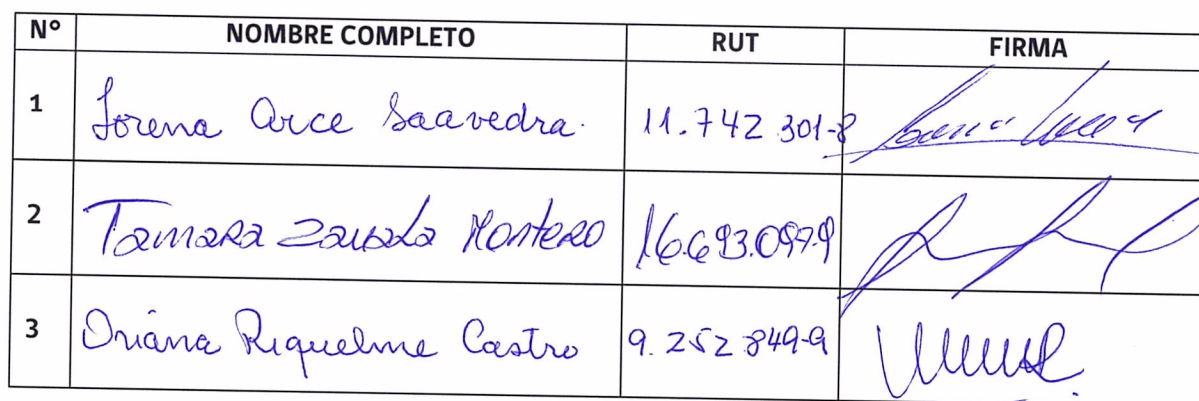 Nº NOMBRE COMPLETO RUT FIRMA
1 Lorena Arce Saavedra. 11.742.301-8
2 Tamara Zavala Montero 16.693.097-9
3 Oriana Riquelme Castro 9.252.849-9